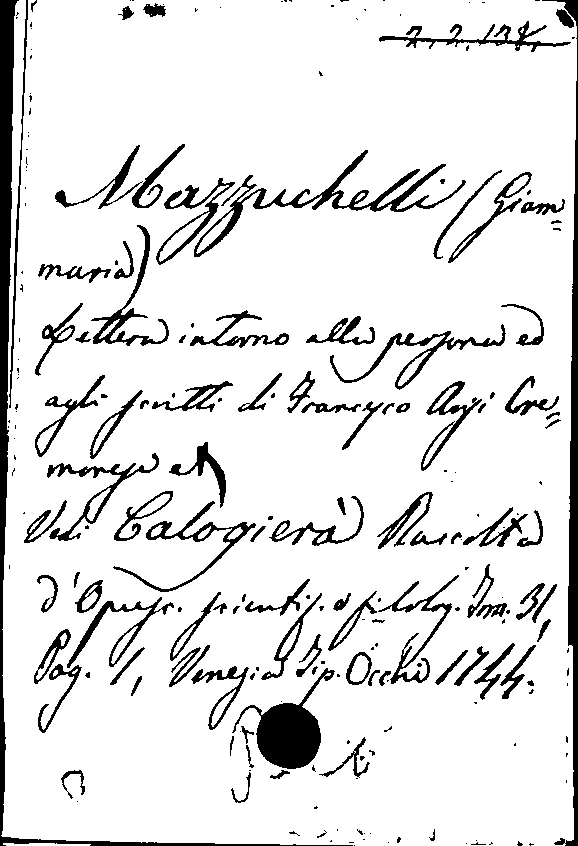 2.2.138.
Mazzuchelli (Giam=
maria)
Lettera intorno alla persona ed
agli scritti di Francesco Arisi Cre=
monese et
Vedi Calogierà Raccolta
d'Opusc. scientif. e filolog. Tom. 31,
Pag. 1, Venezia Tip. Occhi 1744.